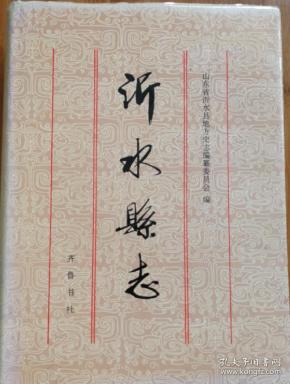 山东省沂水县地方史志编纂委员会 编
沂水縣志
齐鲁书社
孔夫子旧书网